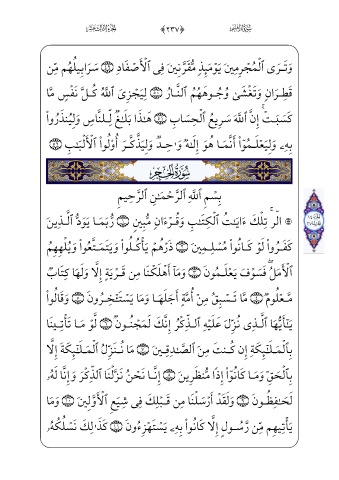 سورة إبراهيم ﴿٢٣٧﴾ الجزء الثالث عشر
وَتَرَى ٱلْمُجْرِمِينَ يَوْمَئِذٍ مُّقَرَّنِينَ فِى ٱلْأَصْفَادِ سَرَابِيلُهُم مِّن
قَطِرَانٍ وَتَغْشَىٰ وُجُوهَهُمُ ٱلنَّارُ لِيَجْزِىَ ٱللَّهُ كُلَّ نَفْسٍ مَّا
كَسَبَتْ ۚ إِنَّ ٱللَّهَ سَرِيعُ ٱلْحِسَابِ هَـٰذَا بَلَـٰغٌ لِّلنَّاسِ وَلِيُنذَرُوا۟
بِهِۦ وَلِيَعْلَمُوٓا۟ أَنَّمَا هُوَ إِلَـٰهٌ وَٰحِدٌ وَلِيَذَّكَّرَ أُو۟لُوا۟ ٱلْأَلْبَـٰبِ
سُورَةُ الحِجْرِ
بِسْمِ ٱللَّهِ ٱلرَّحْمَـٰنِ ٱلرَّحِيمِ
الٓر ۚ تِلْكَ ءَايَـٰتُ ٱلْكِتَـٰبِ وَقُرْءَانٍ مُّبِينٍ رُّبَمَا يَوَدُّ ٱلَّذِينَ
كَفَرُوا۟ لَوْ كَانُوا۟ مُسْلِمِينَ ذَرْهُمْ يَأْكُلُوا۟ وَيَتَمَتَّعُوا۟ وَيُلْهِهِمُ
ٱلْأَمَلُ ۖ فَسَوْفَ يَعْلَمُونَ وَمَآ أَهْلَكْنَا مِن قَرْيَةٍ إِلَّا وَلَهَا كِتَابٌ
مَّعْلُومٌ مَّا تَسْبِقُ مِنْ أُمَّةٍ أَجَلَهَا وَمَا يَسْتَـْٔخِرُونَ وَقَالُوا۟
يَـٰٓأَيُّهَا ٱلَّذِى نُزِّلَ عَلَيْهِ ٱلذِّكْرُ إِنَّكَ لَمَجْنُونٌ لَّوْ مَا تَأْتِينَا
بِٱلْمَلَـٰٓئِكَةِ إِن كُنتَ مِنَ ٱلصَّـٰدِقِينَ مَا نُنَزِّلُ ٱلْمَلَـٰٓئِكَةَ إِلَّا
بِٱلْحَقِّ وَمَا كَانُوٓا۟ إِذًا مُّنظَرِينَ إِنَّا نَحْنُ نَزَّلْنَا ٱلذِّكْرَ وَإِنَّا لَهُۥ
لَحَـٰفِظُونَ وَلَقَدْ أَرْسَلْنَا مِن قَبْلِكَ فِى شِيَعِ ٱلْأَوَّلِينَ وَمَا
يَأْتِيهِم مِّن رَّسُولٍ إِلَّا كَانُوا۟ بِهِۦ يَسْتَهْزِءُونَ كَذَٰلِكَ نَسْلُكُهُۥ